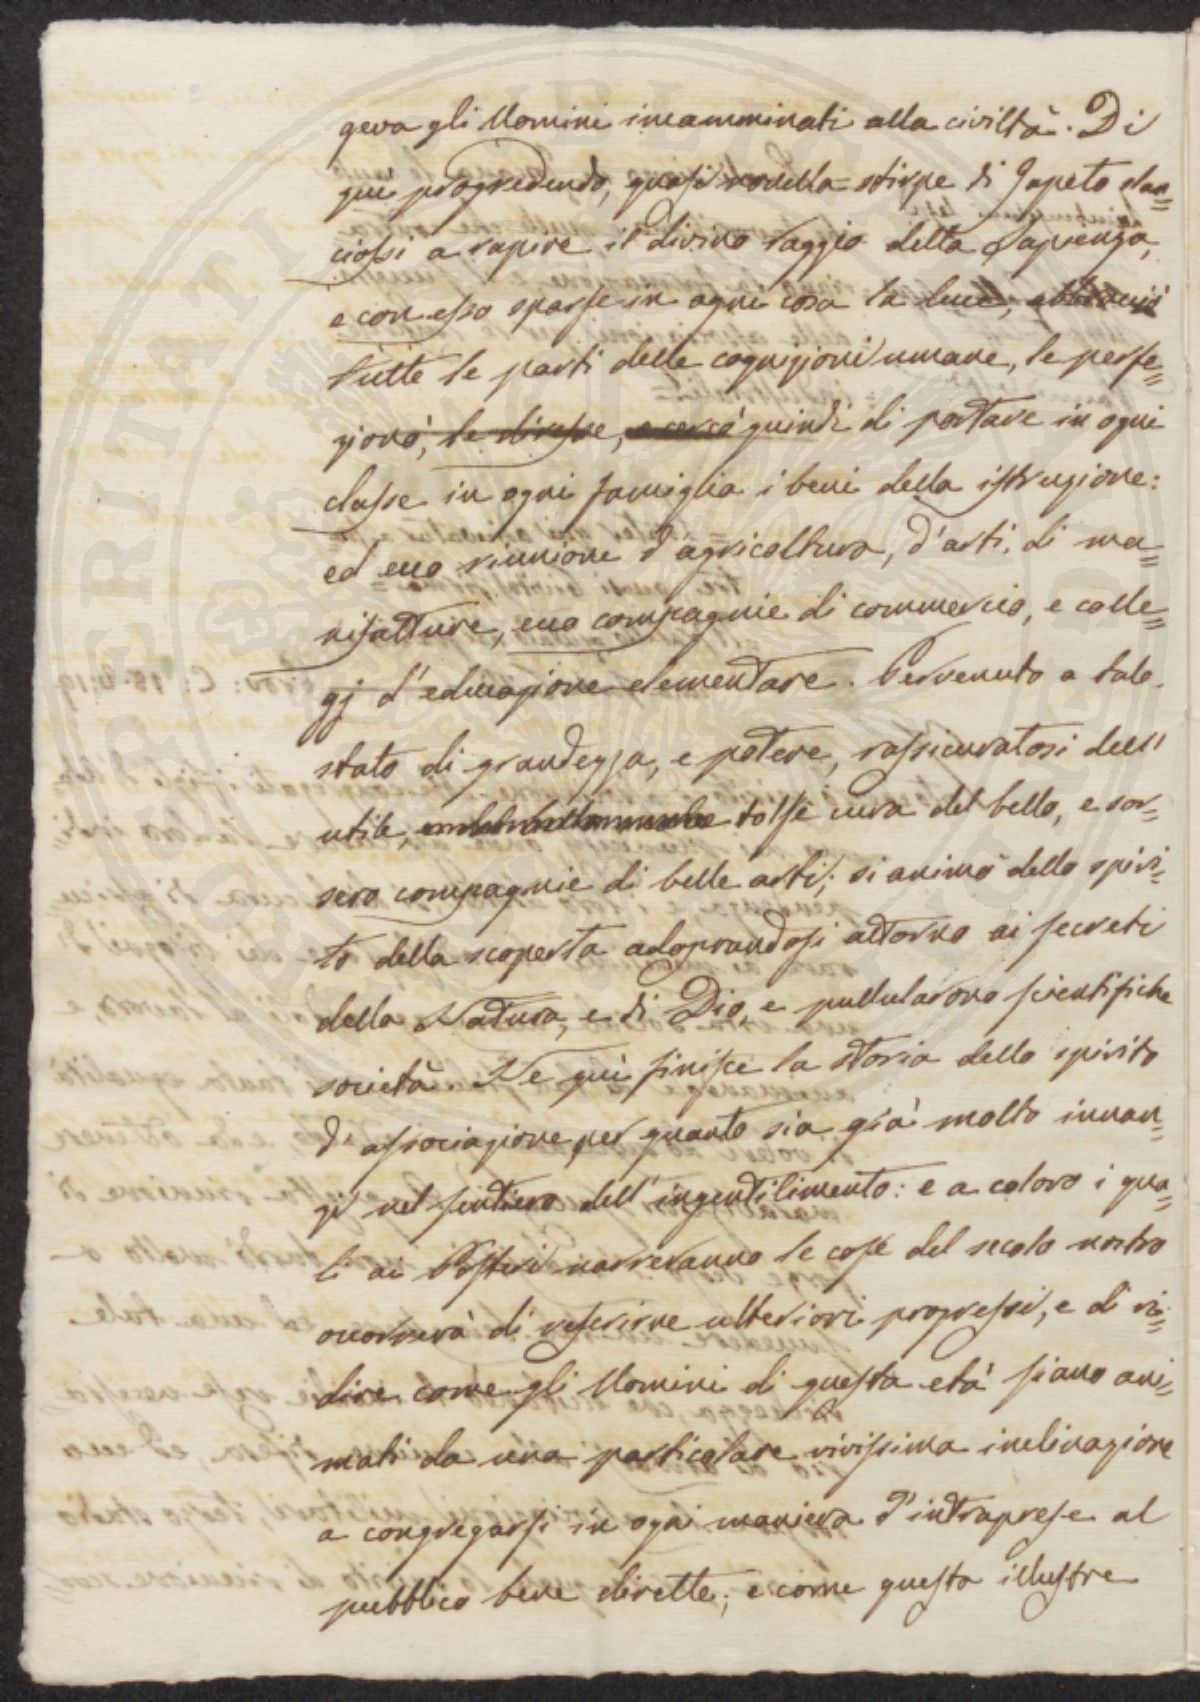 geva gli Uomini incamminati alla civiltà. Di
quì progredendo, quasi novella stirpe di Japeto slan=
ciossi a rapire il divino raggio della Sapienza,
e con esso sparse in ogni cosa la luce, abbracciò
tutte le parti delle cognizioni umane, le perfe=
zionò, le diresse, e cercò quindi di portare in ogni
classe in ogni famiglia i beni della istruzione:
ed ecco riunione d'agricoltura, d'arti, di ma=
nifatture, ecco compagnie di commercio, e colle=
gj d'educazione elementare. Pervenuto a tale
stato di grandezza, e potere, rassicuratosi dell'
utile, tolse cura del bello, e sor=
sero compagnie di belle arti; si animò dello spiri=
to della scoperta adoprandosi attorno ai secreti
della Natura, e di Dio, e pullularono scientifiche
società. Ne quì finisce la storia dello spirito
d'associazione, per quanto sia già molto innan=
zi nel sentiero dell'ingentilimento: e a coloro i qua=
li ai Posteri narreranno le cose del secolo nostro
occorrerà di riferirne ulteriori progressi, e di ri=
dire come gli Uomini di questa età siano ani=
mati da una particolare vivissima inclinazione
a congregarsi in ogni maniera d'intraprese al
pubblico bene dirette; e come questa illustre